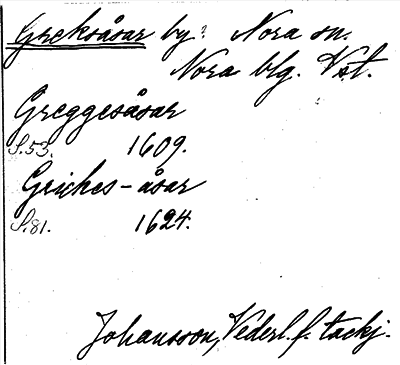 Greksåsar by. Nora sn.
Nora blg. Vst.
Greggesåsar
S.53. 1609.
Griches-åsar
S.81. 1624.
Johansson, Vederl. f. tackj.